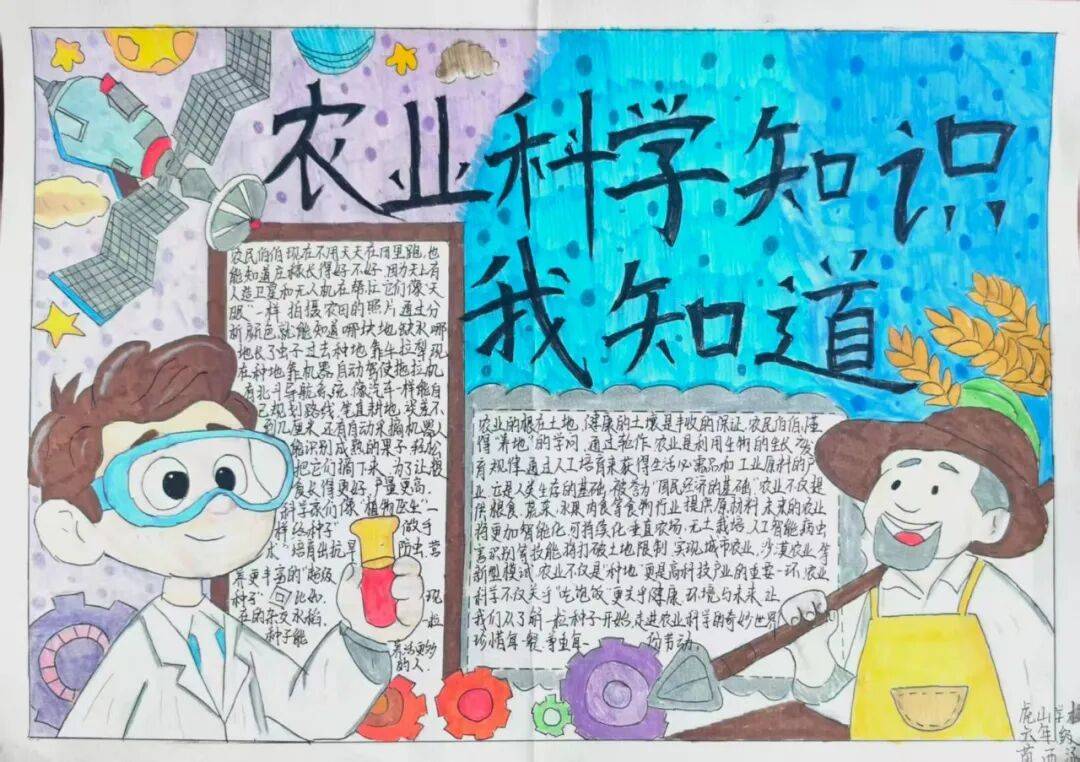 农业科学知识
我知道
农民伯伯现在不用天天在田里跑,也
能知道庄稼长得好不好,因为天上有
人造卫星和无人机在帮忙它们像"天
眼"一样 拍摄农田的照片 通过分
析颜色就能知道哪块地缺水哪
地长了虫子过去种地靠牛拉犁现
在种地靠机器自动驾驶拖拉机
有北斗导航系统像汽车一样能自
己规划路线 笔直耕地 误差不
到几厘米 还有自动采摘机器人
能识别成熟的果子轻松
把它们摘下来 为了让粮
食长得更好 产量更高
科学家们像"植物医生"一
样给种子 做手
术"培育出抗旱 防虫、营
养更丰富的"超级
种子" 比如 现
在的杂交水稻, 一粒
种子能
养活更多
的人
农业的根在土地,健康的土壤是丰收的保证,农民伯伯懂
得"养地"的学问,通过轮作 农业是利用生物的生长发
育规律,通过人工培育来获得生活必需品和工业原料的产
业,它是人类生存的基础,被誉为"国民经济的基础",农业不仅提
供粮食、蔬菜、水果,肉食等食物行业提供原材料 未来的农业
将更加智能化,可持续化,垂直农场、无土栽培、人工智能病虫
害识别等技能将打破土地限制,实现城市农业、沙漠农业等
新型模试,农业不仅是"种地",更是高科技产业的重要一环,农业
科学不仅关乎"吃饱饭"更关乎健康、环境与未来,让
我们从了解一粒种子开始,走进农业科学的奇妙世界
珍惜每一餐,尊重每一 份劳动。
虎山学校
六年级